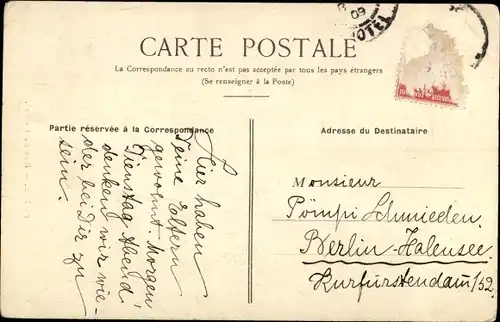 09
HOTEL
CARTE POSTALE
La Correspondance au recto n'est pas acceptée par tous les pays étrangers
(Se renseigner à la Poste)
Partie réservée à la Correspondance
Adresse du Destinataire
Hier haben
Deine Eltern
gewohnt. Morgen
Dienstag Abend
denken wir wie-
der bei Dir zu
sein.
Monsieur
Pömpi Schmieden
Berlin-Halensee.
Kurfürstendam/52.